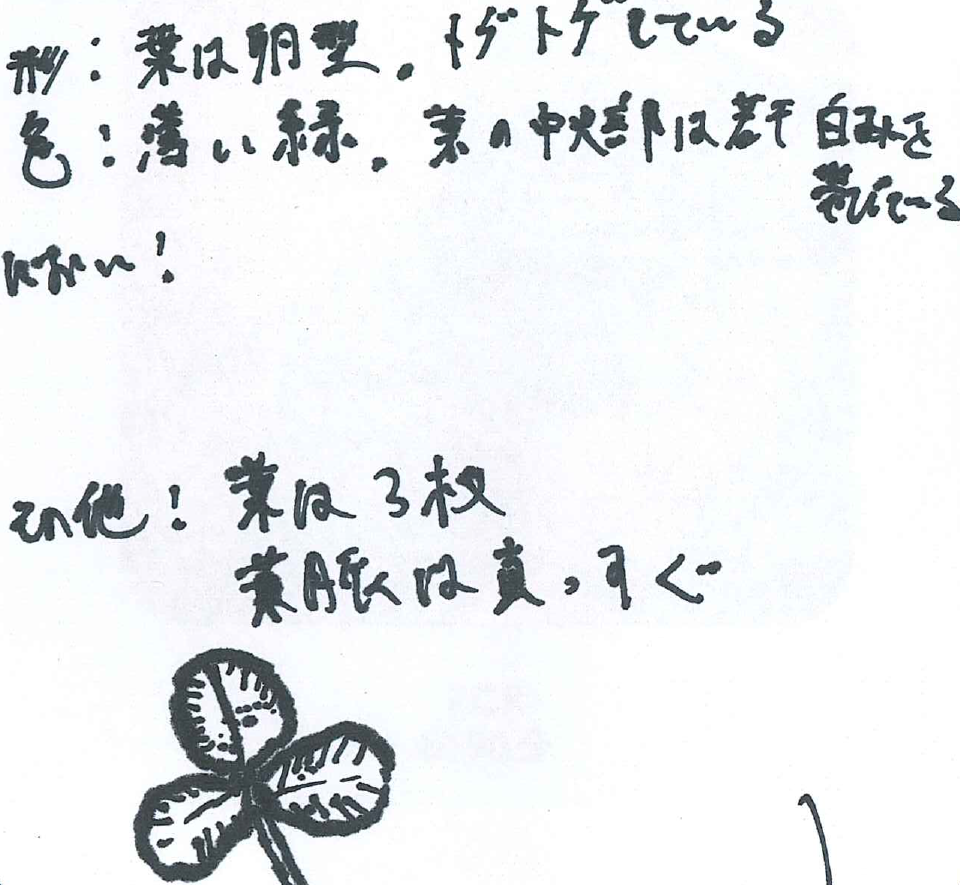 形：葉は卵型。トゲトゲしている
色：薄い緑。葉の中央部は若干白みを
帯びている
におい：
その他：葉は3枚
葉脈は真っすぐ